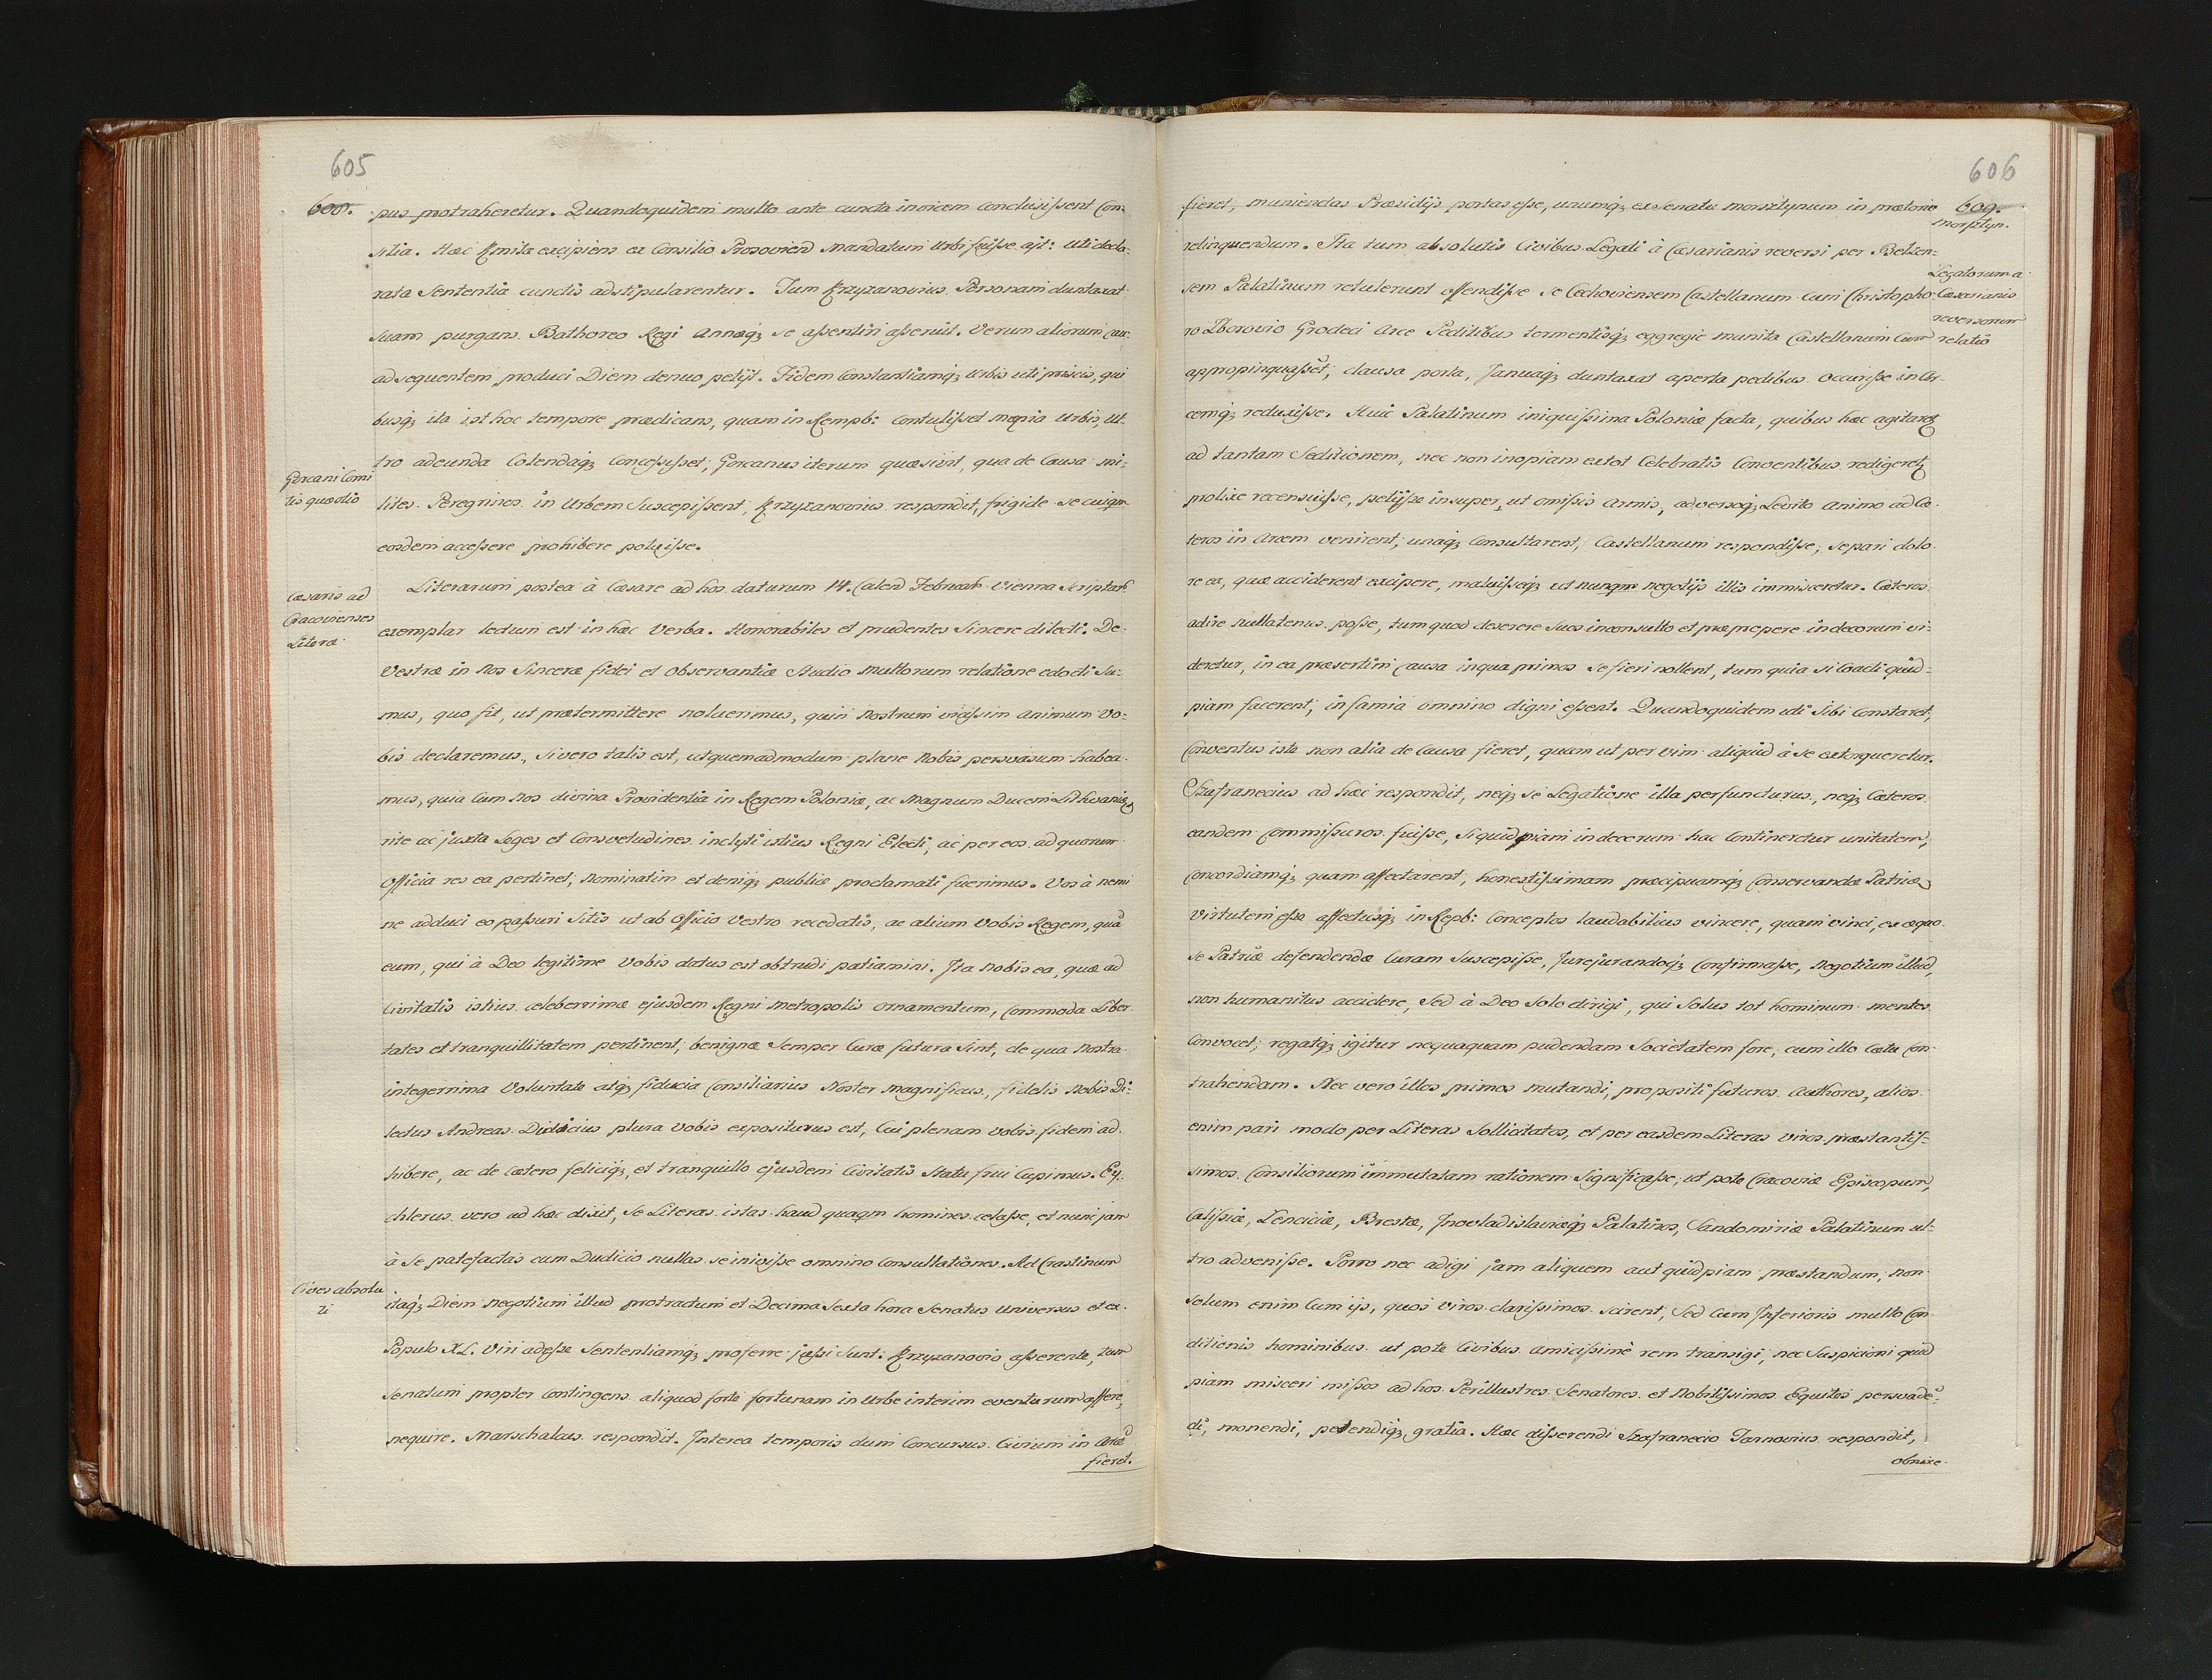 605
608.
pus protraheretur. Quandoquidem multo ante cuncta invicem conclusissent Con-
silia. Haec Kmita excipiens ex Consilio Prosovien mandatum Urbi fuisse ajt: uti decla-
rata Sententia cunctis adstipularentur. Tum Krzyzanovius Personam duntaxat
suam purgans Bathoreo Regi Annaeq; se assentiri asseruit. Verum aliorum cau-
ad sequentem produci Diem denuo petijt. Fidem Constantiamq; Urbis uti priscis, qui
busq; ita ist hoc tempore praedicans, quam in Rempb: Contulisset moenia Urbis, ul-
tro adeunda Colendaq; Concessisset; Gorcanus iterum quaesivit, qua de Causa mi-
Gorcani Comi
tis quaestio
lites Peregrinos in Urbem Suscepissent, Krzyzanovius respondit, frigide se cuiqm
eosdem accessere prohibere potuisse.
Caesaris ad
Cracovienses
Literae
Literarum postea à Caesare ad hos daturum 14. Calend Februarÿ Vienna Scriptarÿ
exemplar lectum est in haec Verba. Honorabiles et prudentes Sincere dilecti. De
Vestrae in Nos Sincerae fidei et Observantiae Studio Multorum relatione edocti Su-
mus, quo fit, ut praetermittere noluerimus, quin Nostrum vicissim animum Vo-
bis declaremus, Si vero talis est, ut quemadmodum plane Nobis persvasum habea-
mus, quia Cum Nos divina Providentia in Regem Poloniae, ac Magnum Ducem Lithvaniae
rite ac juxta Leges et Consvetudines inclyti istius Regni Electi, ac per eos ad quorum
Officia res ea pertinet, Nominatim et deniq; publice proclamati fuerimus. Vos à nemi
ne adduci eo passuri Sitis ut ab Officio Vestro recedatis, ac alium Vobis Regem, quā
eum, qui à Deo legitime Vobis datus est obtrudi patiamini. Ita Nobis ea, quae ad
Civitatis istius celeberrimae ejusdem Regni Metropolis ornamentum, Commoda Liber-
tates et tranquillitatem pertinent, benigne Semper Curae futura Sint, de qua Nostra
integerrima Voluntate atq; fiducia Consiliarius Noster Magnificus, fidelis Nobis Di-
lectus Andreas Dudicius plura Vobis expositurus est, Cui plenam Vobis fidem ad-
hibere, ac de caetero felicig; et tranquillo ejusdem Civitatis Statu frui Cupimus. Ey-
chlerus vero ad haec dixit, Se Literas istas haud quaqm homines celasse, et nunc jam
à Se patefactas cum Dudicio nullas se inivisse omnino Consultationes. Ad Crastinum
Cives absolu
ti
itaq; Diem negotium illud protractum et Decima Sexta hora Senatus Universus et ex
Populo XL. Viri adesse Sententiamq; proferre jussi Sunt: Krzyzanovio asserente, tum
Senatum propter Contingens aliquod forte fortunam in Urbe interim eventurum affere,
nequire. Marschalcus respondit. Interea temporis dum Concursus Civium in Arcē
fieret.
606
609.
fieret, muniendas Praesidijs portas esse, unumq; ex Senatu Morsztynum in praetorio
Morsztyn.
relinquendum. Ita tum absolutis Civibus Legati à Caesarianis reversi per Belzen-
Legatorum a
Caesarianis
reversorum
relatio
sem Palatinum retulerunt offendisse se Czechoviensem Castellanum cum Christopho
ro Zborovio Grodeci Arce Peditibus tormentisq; eggregie munita Castellanum Cum
appropinquasset, clausa porta, Januaq; duntaxat aperta pedibus Occurisse in Ar-
cemq; reduxisse. Huic Palatinum iniquissima Poloniae facta, quibus haec agitaret
ad tantam Seditionem, nec non inopiam ex tot Celebratis Conventibus redigeret
prolixe recensuisse, petijsse insuper, ut omissis Armis, adversoq; Levito Animo ad Cae-
teros in Arcem venirent, unaq; Consultarent, Castellanum respondisse, se pari dolo
re ea, quae acciderent excipere, maluisseq; ut nunqm negotijs illis immisceretur. Caeteros
adire nullatenus posse, tum quod deserere Suos inconsulto et praepropere indecorum vi-
deretur, in ea praesertim Causa in qua primos se fieri nollent, tum quia si Coacti quid-
piam facerent, infamia omnino digni essent. Quandoquidem uti Sibi Constaret,
Conventus iste non alia de Causa fieret, quam ut per vim aliquid à se extorqueretur.
Szafranecius ad haec respondit, neq; se Legatione illa perfuncturus, neq; Caeteros
eandem Commissuros fuisse, Si quidpiam indecorum hac Contineretur unitatem,
Concordiamq; quam affectarent, honestissimam praecipuamq; Conservandae Patriae
Virtutem esse affectusq; in Repb: Conceptos laudabilius vincere, quam vinci, ex aequo
se Patriae defendendae Curam Suscepisse, Jurejurandoq; Confirmasse, Negotium illud,
non humanitus accidere, Sed à Deo Solo dirigi, qui Solus tot hominum mentes
Convocet, regatq; igitur nequaquam pudendam Societatem fore, cum illo Caetu Con-
trahendam. Nec vero illos primos mutandi, propositi futuros Authores, alios
enim pari modo per Literas Sollicitatos, et per easdem Literas viros praestantis-
simos Consiliorum immutatam rationem Significasse, ut pote Cracoviae Episcopum,
Calissiae, Lenciciae, Brestae, Inovladislaviaeq; Palatinos, Sandomiriae Palatinum ul-
tro advenisse. Porro nec adigi jam aliquem aut quidpiam praestandum, non
solum enim Cum ijs, quos viros clarissimos scirent, Sed Cum Inferioris multo Con-
ditionis hominibus ut pote Civibus amicissimè rem transigi, nec Suspicioni quid
piam misceri missos ad hos Perillustres Senatores et Nobilissimos Equites persvadē-
di, monendi, petendiq; gratia. Haec disserendi Szafranecio Tarnovius respondit,
obnixe